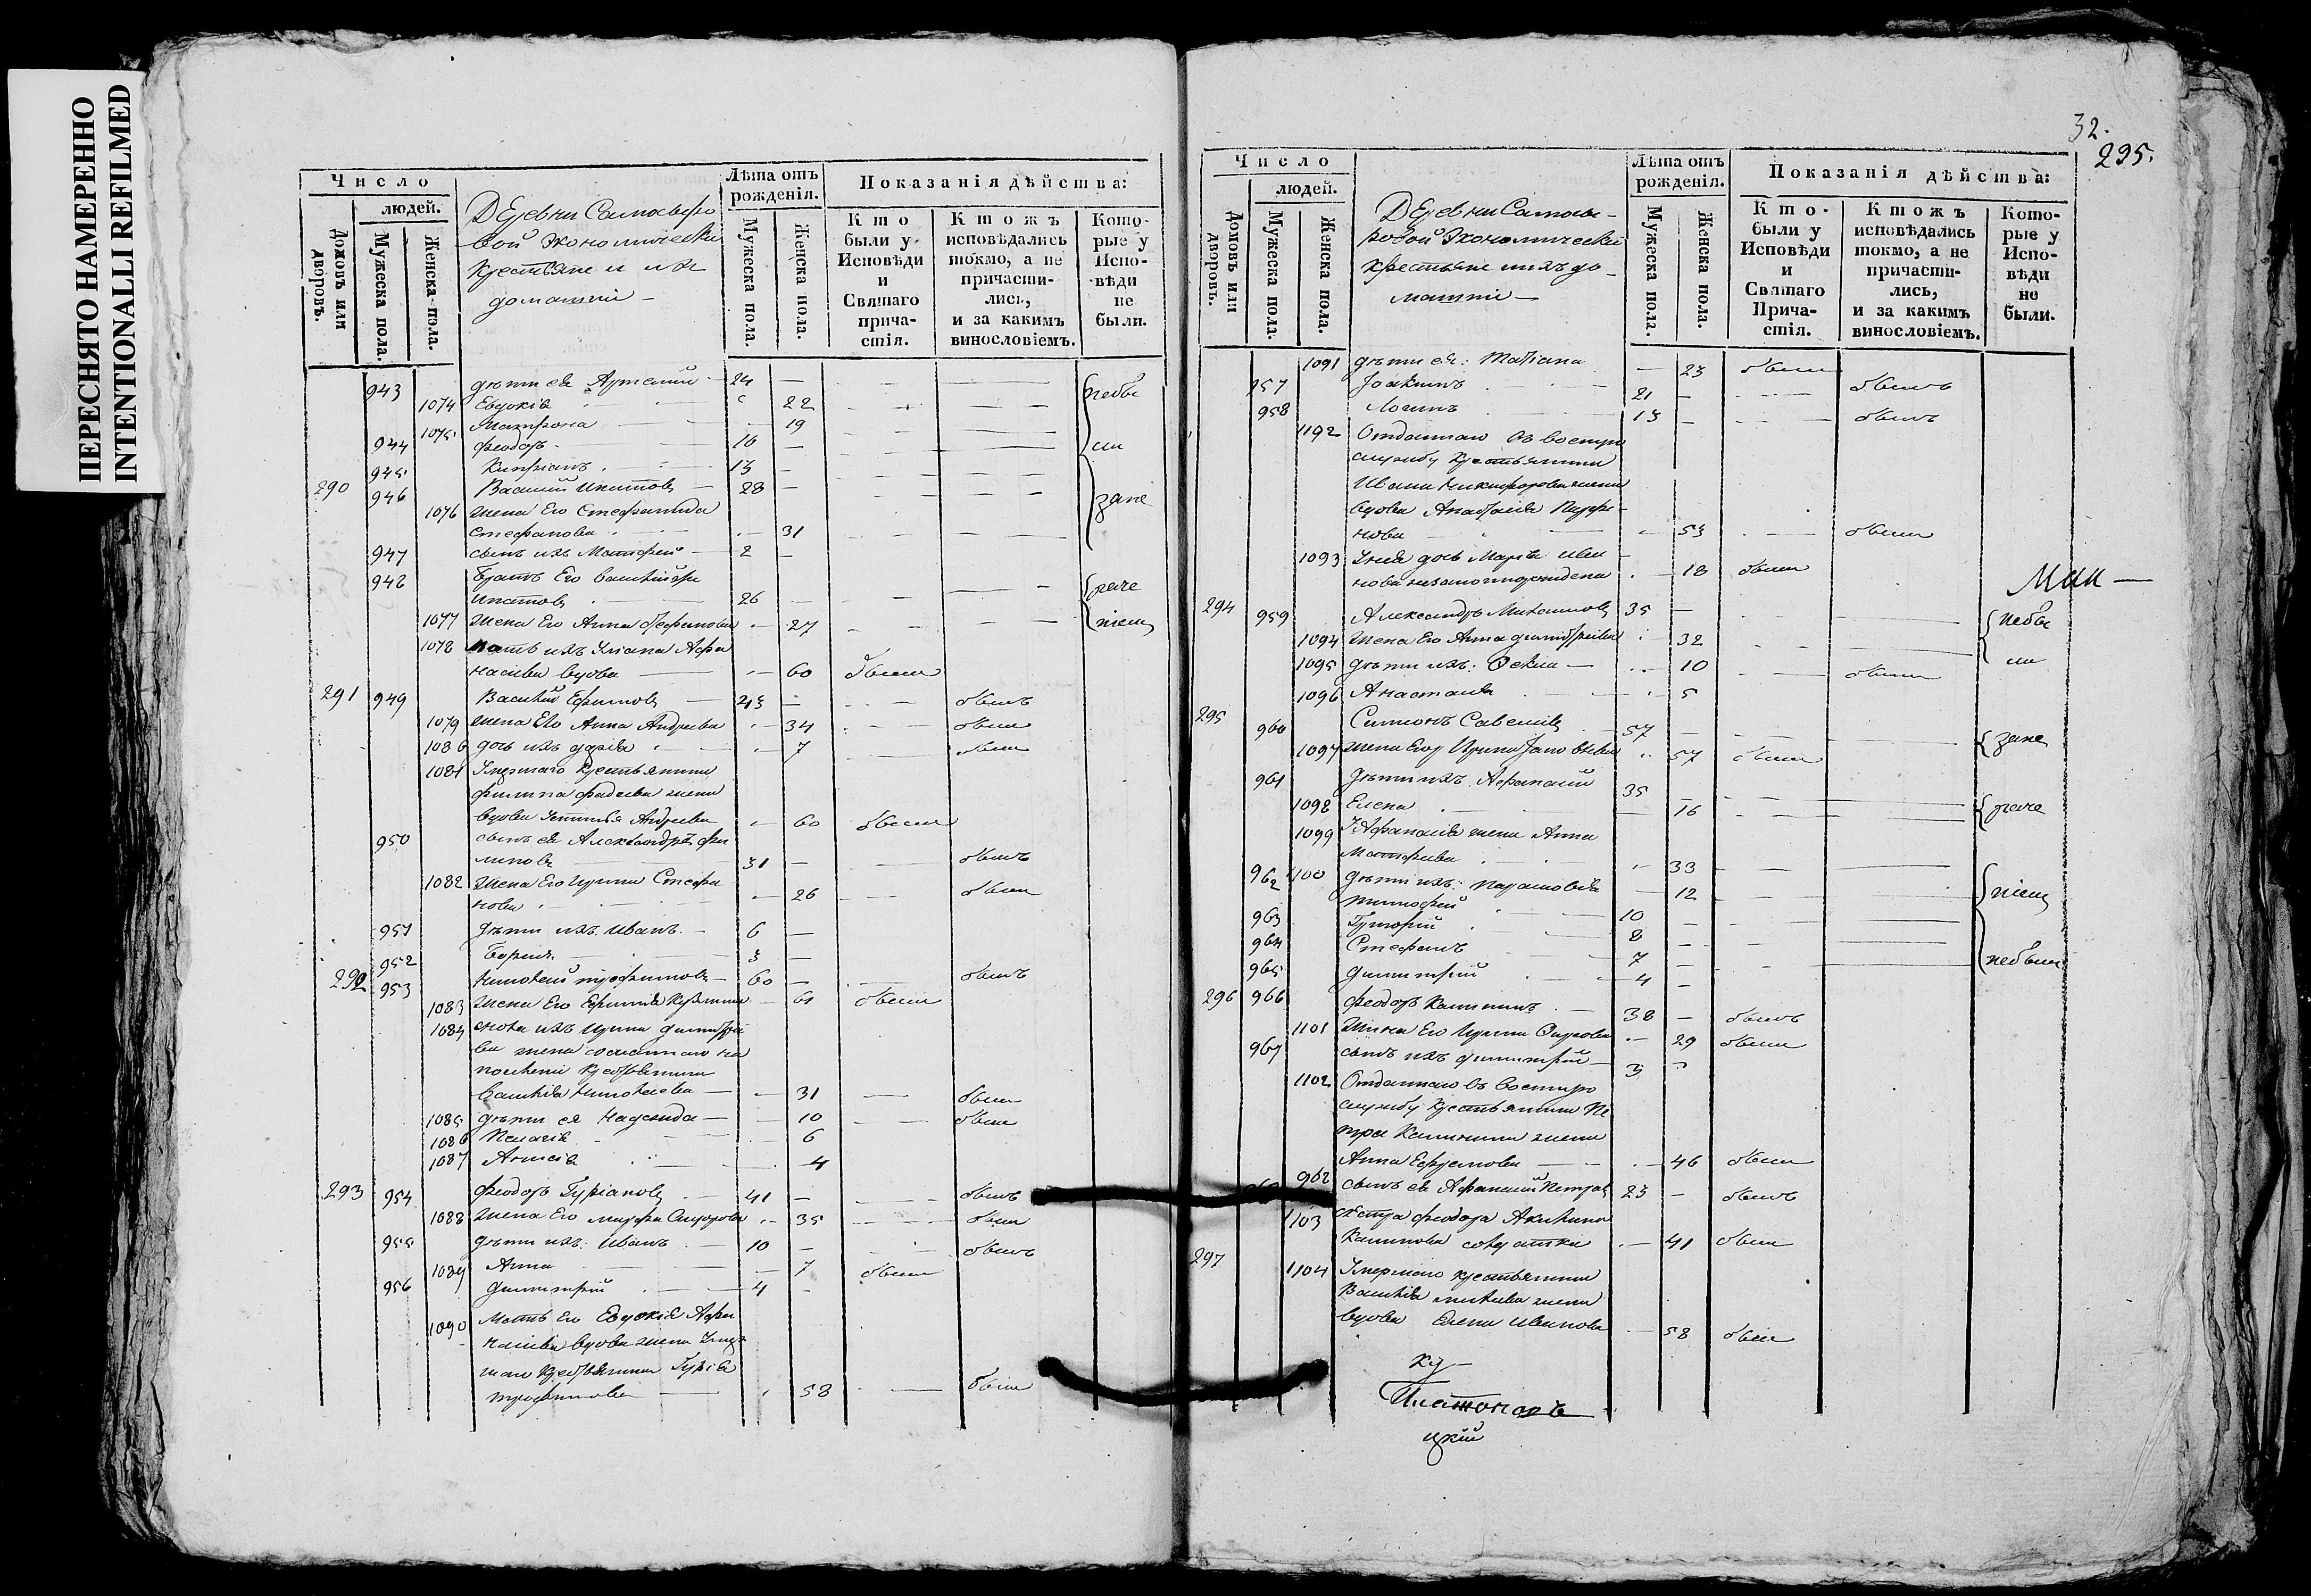 ПЕРЕСНЯТО НАМЕРЕННО
INTENTIONALLI REFILMED
Число
людей.
Домовъ или дворовъ.
Мужеска пола.
Женска пола.
Деревни
вой Экономически
крестьяне и ихъ
домашніе
Лѣта отъ рожденія.
Мужеска пола.
Женска пола.
Показанія дѣйства:
Кто были у Исповѣди и Святаго прича-стія.
Ктожъ исповѣдались токмо, а не причасти-лись, и за какимъ винословіемъ.
Кото-рые у Испо-вѣди не были.
943 дѣти ея Артемий 24
1074 Евдокія 22
1075 Матрона 19
944 Феодоръ 16
945 Кипріанъ 13
290 946 Василий Ипатовъ 28
1076 жена Его Стефанида
Стефанова 31
947 сынъ ихъ Матфей 2
948 Братъ Его Василий же
Ипатовъ 26
1077 жена Его Анна 27
1078 мать ихъ Улиана Афа
насиева вдова 60 были
291 949 Василий Ефимовъ 43 былъ
1079 жена Его Анна Андреева 34 была
1080 дочь ихъ Дарія 7 была
1081 Умершаго крестьянина
Филипа Фадеева жена
вдова Устинья Андреева 60 была
950 сынъ ея Александръ Фи
липовъ 31 былъ
1082 жена Его Ирина Стефа
нова 26 была
951 дѣти ихъ Иванъ 6
952 Борисъ 3
292 953 Трофимовъ 60 былъ
1083 жена Его Ефимія 61 была
1084 сноха ихъ Ирина Димитріе
ва жена сосланнаго на
поселеніе крестьянина
31 была
1085 дѣти ея Надежда 10 была
1086 Пелагія 6
1087 Анисія 4
293 954 Феодоръ Гуріановъ 41 былъ
1088 жена Его Марфа Сидорова 35 была
955 дѣти ихъ: Иванъ 10 былъ
1089 Анна 7 была
956 Димитрій 4
1090 Мать Его Евдокія Афа
насіева вдова жена Умер
шаго крестьянина Гурія
Трофимова 58 была
32.
295.
Число
людей.
Домовъ или дворовъ.
Мужеска пола.
Женска пола.
Деревни
ровой Экономически
крестьяне ихъ до
машніе
Лѣта отъ рожденія.
Мужеска пола.
Женска пола.
Показанія дѣйства:
Кто были у Исповѣди и Святаго Прича-стія.
Ктожъ исповѣдались токмо, а не причасти-лись, и за какимъ винословіемъ.
Кото-рые у Испо-вѣди не были.
1091 дѣти ея: Татіана 23 была
957 Іоакимъ 21 былъ
958 Логинъ 13 былъ
1192 Отданнаго въ военную
службу крестьянина
Ивана Никифорова жена
вдова Анастасія Парфе
нова 53 была
1093 У нея дочь Марія Ива
нова 18 была
294 959 Александръ 35
1094 жена Его Анна Димитріева 32
1095 дѣти ихъ: Фекла 10 была
1096 Анастасія 5
295 960 Симеонъ Савельевъ 57
1097 жена Его Ирина Яковлева 57 была
961 дѣти ихъ Афанасий 35
1098 Елена 16
1099 У Афанасія жена Анна
Матфеева 33
962 1100 дѣти ихъ: Парасковія 12
Тимофей 10
963 Григорій 8
964 Стефанъ 7
965 Димитрій 4
296 966 Феодоръ Калининъ 38 былъ
1101 жена Его Ирина 29 была
967 сынъ ихъ Димитрій 3
1102 Отданнаго въ военную
службу крестьянина Пе
тра Калинина жена
Анна 46 была
962 сынъ ея Афанасий Петровъ 23 былъ
1103 сестра Феодора Акилина
Калинова солдатка 41 была
297 1104 Умершаго крестьянина
Василія жена
вдова Елена Иванова 58 была